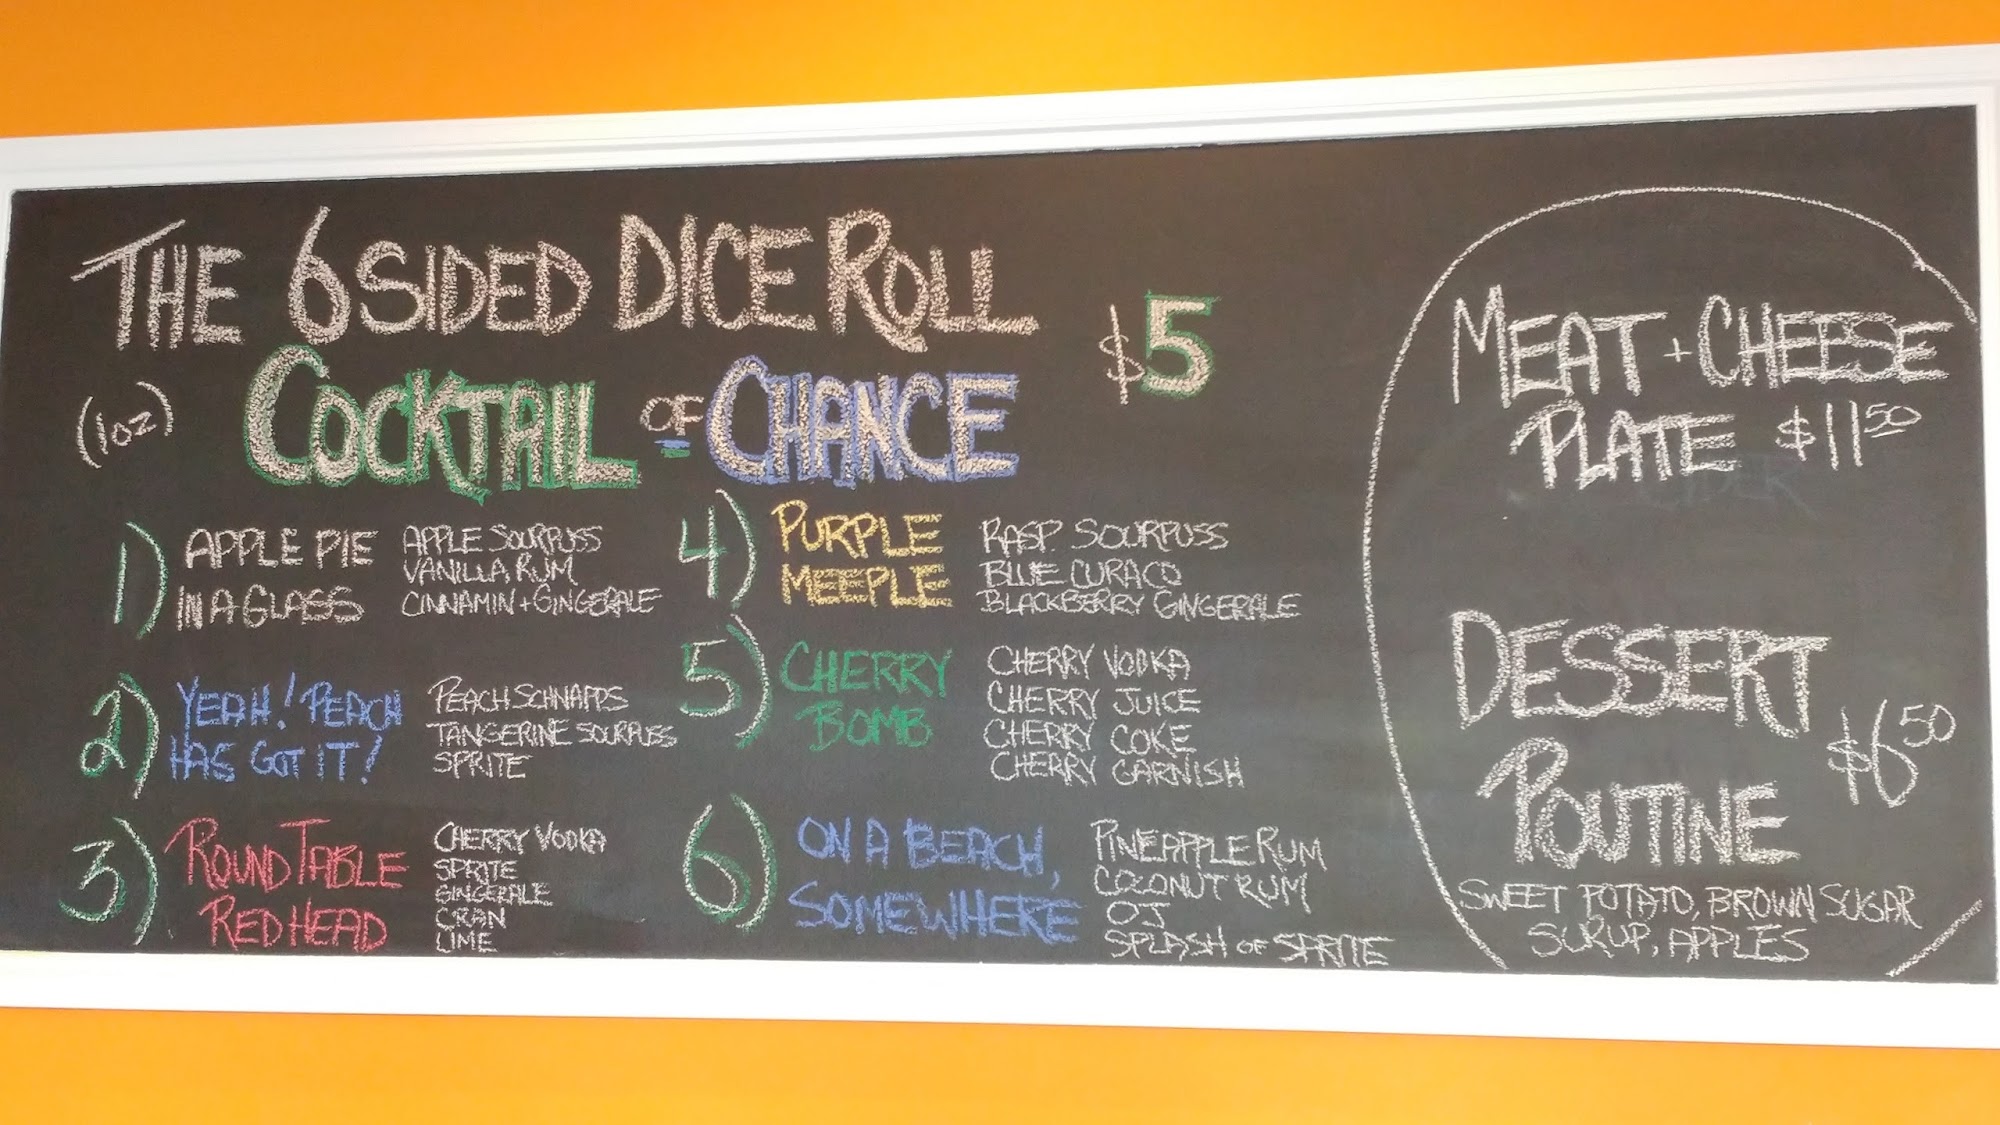 THE 6 SIDED DICE ROLL
(1oz) COCKTAIL OF CHANCE
$5
1) APPLE PIE
IN A GLASS
APPLE SOURPUSS
VANILLA RUM
CINNAMIN + GINGERALE
2) YEAH! PEACH
HAS GOT IT!
PEACH SCHNAPPS
TANGERINE SOURPUSS
SPRITE
3) ROUND TABLE
RED HEAD
CHERRY VODKA
SPRITE
GINGERALE
CRAN
LIME
4) PURPLE
MEEPLE
RASP. SOURPUSS
BLUE CURACO
BLACKBERRY GINGERALE
5) CHERRY
BOMB
CHERRY VODKA
CHERRY JUICE
CHERRY COKE
CHERRY GARNISH
6) ON A BEACH,
SOMEWHERE
PINEAPPLE RUM
COCONUT RUM
OJ
SPLASH OF SPRITE
MEAT + CHEESE
PLATE $11.50
DESSERT
POUTINE $6.50
SWEET POTATO, BROWN SUGAR
SURUP, APPLES